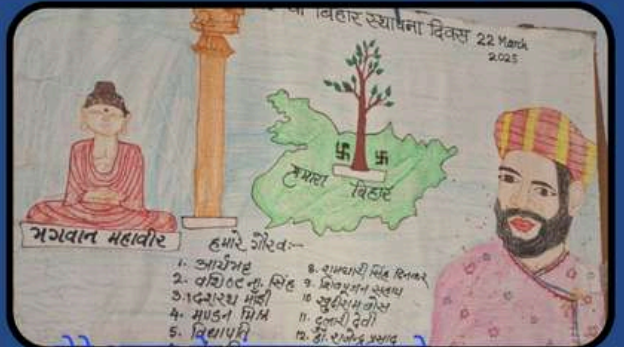 वां बिहार स्थापना दिवस 22 March
2025
हमारा बिहार
भगवान महावीर
हमारे गौरव:-
1. आर्यभट्ट
2. वशिष्ठ ना. सिंह
3. दशरथ माँझी
4. मण्डन मिश्र
5. विद्यापति
8. रामधारी सिंह दिनकर
9. शिवपूजन सहाय
10 खुदीराम बोस
11. दुलारी देवी
12. डॉ. राजेन्द्र प्रसाद